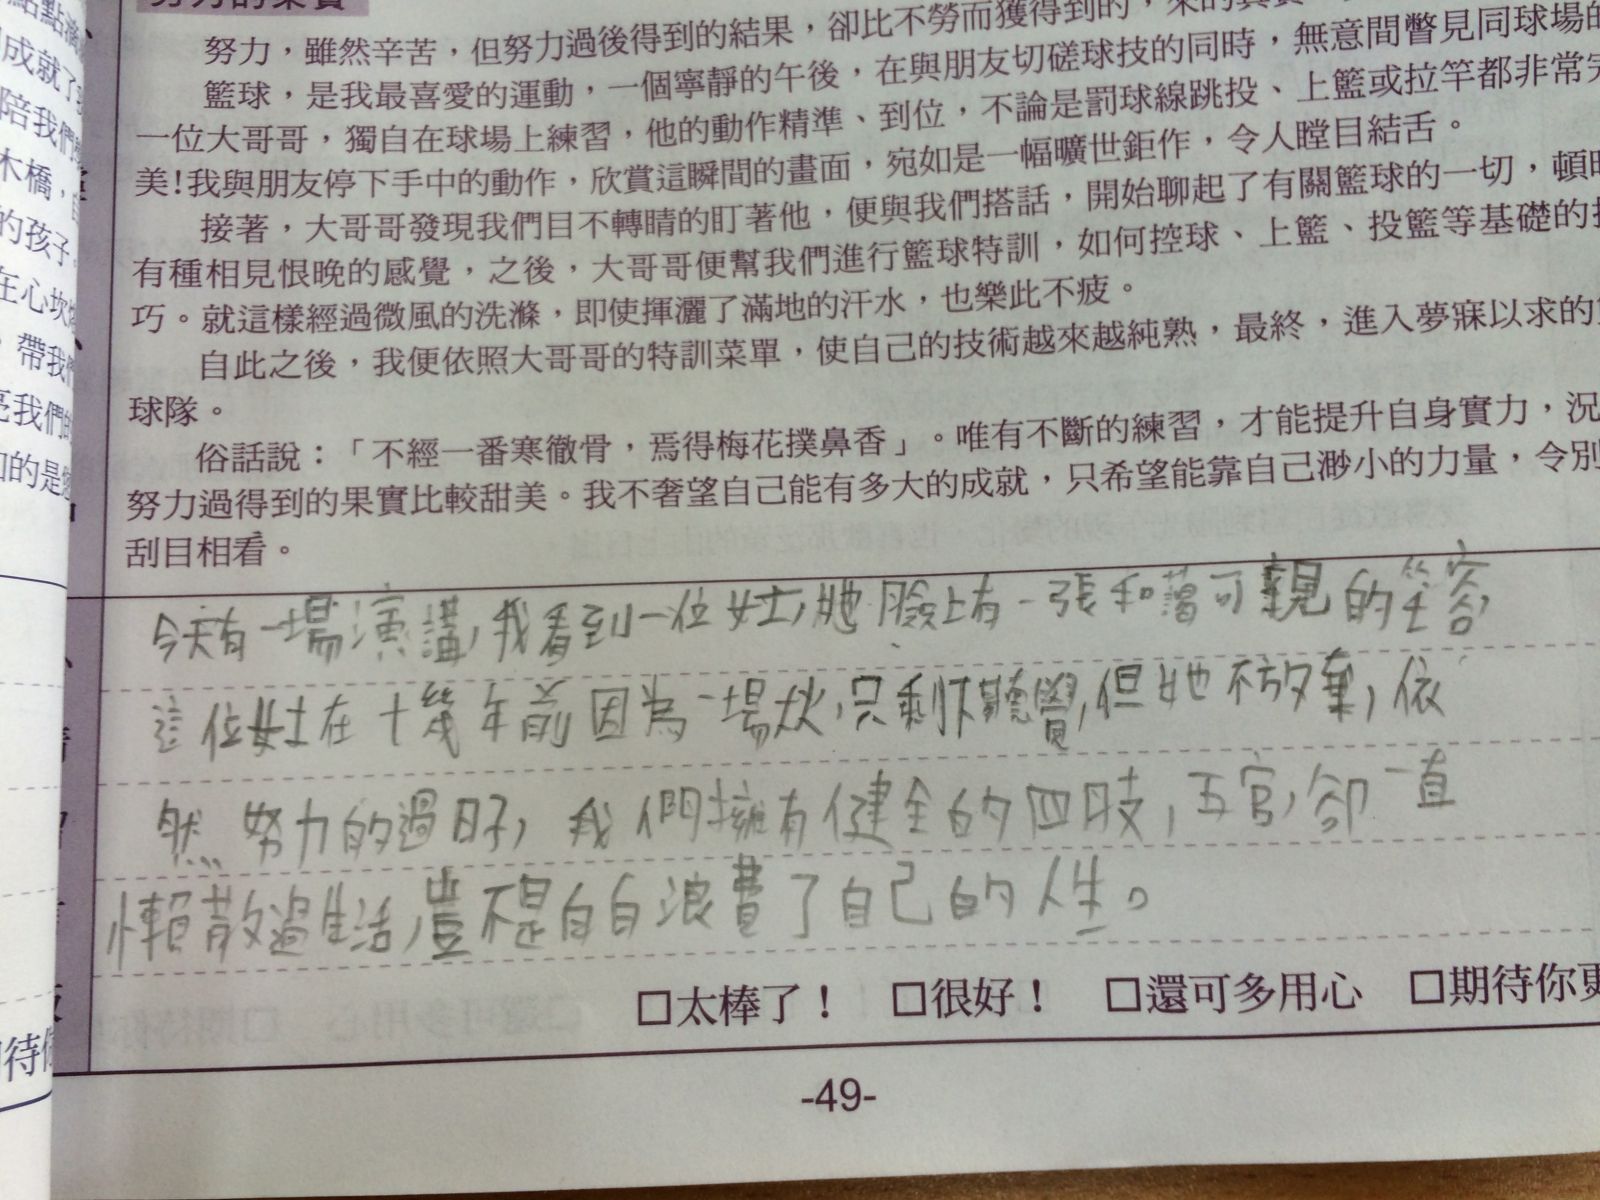 努力的果實
努力，雖然辛苦，但努力過後得到的結果，卻比不勞而獲得到的，來的真實
籃球，是我最喜愛的運動，一個寧靜的午後，在與朋友切磋球技的同時，無意間瞥見同球場的
一位大哥哥，獨自在球場上練習，他的動作精準、到位，不論是罰球線跳投、上籃或拉竿都非常完
美!我與朋友停下手中的動作，欣賞這瞬間的畫面，宛如是一幅曠世鉅作，令人瞠目結舌。
接著，大哥哥發現我們目不轉睛的盯著他，便與我們搭話，開始聊起了有關籃球的一切，頓時
有種相見恨晚的感覺，之後，大哥哥便幫我們進行籃球特訓，如何控球、上籃、投籃等基礎的技
巧。就這樣經過微風的洗滌，即使揮灑了滿地的汗水，也樂此不疲。
自此之後，我便依照大哥哥的特訓菜單，使自己的技術越來越純熟，最終，進入夢寐以求的
球隊。
俗話說：「不經一番寒徹骨，焉得梅花撲鼻香」。唯有不斷的練習，才能提升自身實力，況
努力過得到的果實比較甜美。我不奢望自己能有多大的成就，只希望能靠自己渺小的力量，令別
刮目相看。
今天有一場演講，我看到一位女士，她臉上有一張和藹可親的笑容，
這位女士在十幾年前因為一場火，只剩下聽覺，但她不放棄，依
然努力的過日子，我們擁有健全的四肢，五官，卻一直
懶散過生活，豈不是白白浪費了自己的人生。
□太棒了！ □很好！ □還可多用心 □期待你更
-49-